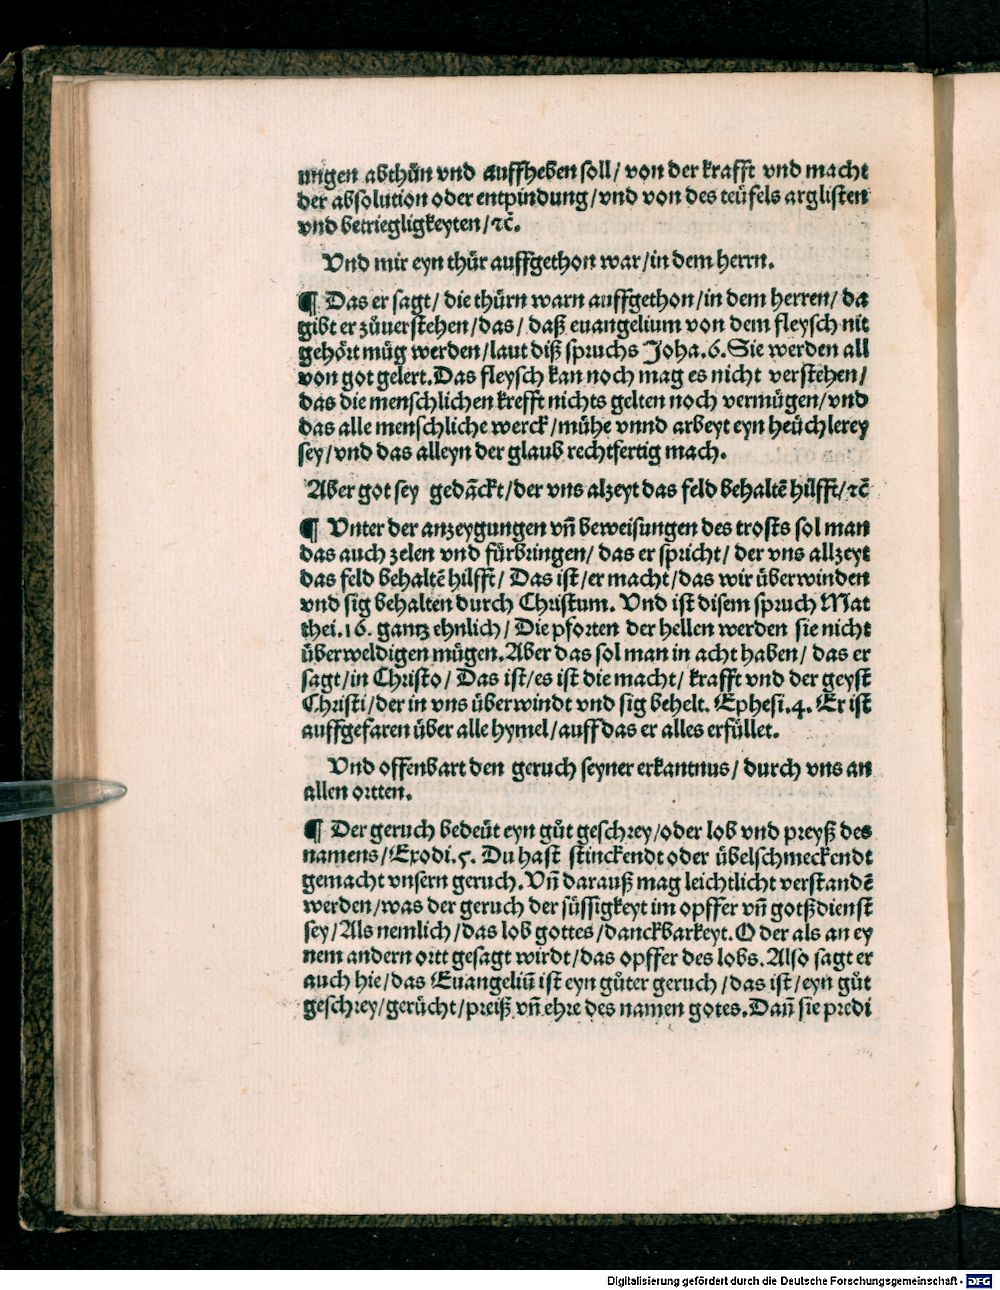 ungen abthůn vnd auffheben soll/ von der krafft vnd macht
der absolution oder entpindung/vnd von des teüfels arglisten
vnd betriegligkeyten/ ⁊c̃.
Vnd mir eyn thür auffgethon war/in dem herrn.
¶ Das er sagt/ die thürn warn auffgethon/in dem herren/ da
gibt er zůuerstehen/das/ daß euangelium von dem fleysch nit
gehört müg werden/laut diß spruchs Joha.6.Sie werden all
von got gelert.Das fleysch kan noch mag es nicht verstehen/
das die menschlichen krefft nichts gelten noch vermügen/vnd
das alle menschliche werck/mühe vnnd arbeyt eyn heüchlerey
sey/vnd das alleyn der glaub rechtfertig mach.
Aber got sey gedãckt/der vns alzeyt das feld behaltẽ hilfft/⁊c̃
¶ Vnter der anzeygungen vñ beweisungen des trosts sol man
das auch zelen vnd fürbringen/ das er spricht/ der vns allzeyt
das feld behaltẽ hilfft/ Das ist/er macht/das wir überwinden
vnd sig behalten durch Christum. Vnd ist disem spruch Mat
thei.16. gantz ehnlich/ Die pforten der hellen werden sie nicht
überweldigen mügen.Aber das sol man in acht haben/ das er
sagt/in Christo/ Das ist/es ist die macht/ krafft vnd der geyst
Christi/der in vns überwindt vnd sig behelt. Ephesi.4. Er ist
auffgefaren über alle hymel/auff das er alles erfüllet.
Vnd offenbart den geruch seyner erkantnus/ durch vns an
allen ortten.
¶ Der geruch bedeüt eyn gůt geschrey/oder lob vnd preyß des
namens/Exodi.5. Du hast stinckendt oder übelschmeckendt
gemacht vnsern geruch.Vñ darauß mag leichtlicht verstandẽ
werden/was der geruch der süssigkeyt im opffer vñ gotßdienst
sey/Als nemlich/das lob gottes/danckbarkeyt.Oder als an ey
nem andern ortt gesagt wirdt/das opffer des lobs.Also sagt er
auch hie/das Euangeliũ ist eyn gůter geruch/das ist/eyn gůt
geschrey/gerücht/preiß vñ ehre des namen gotes.Dañ sie predi
Digitalisierung gefördert durch die Deutsche Forschungsgemeinschaft - DFG